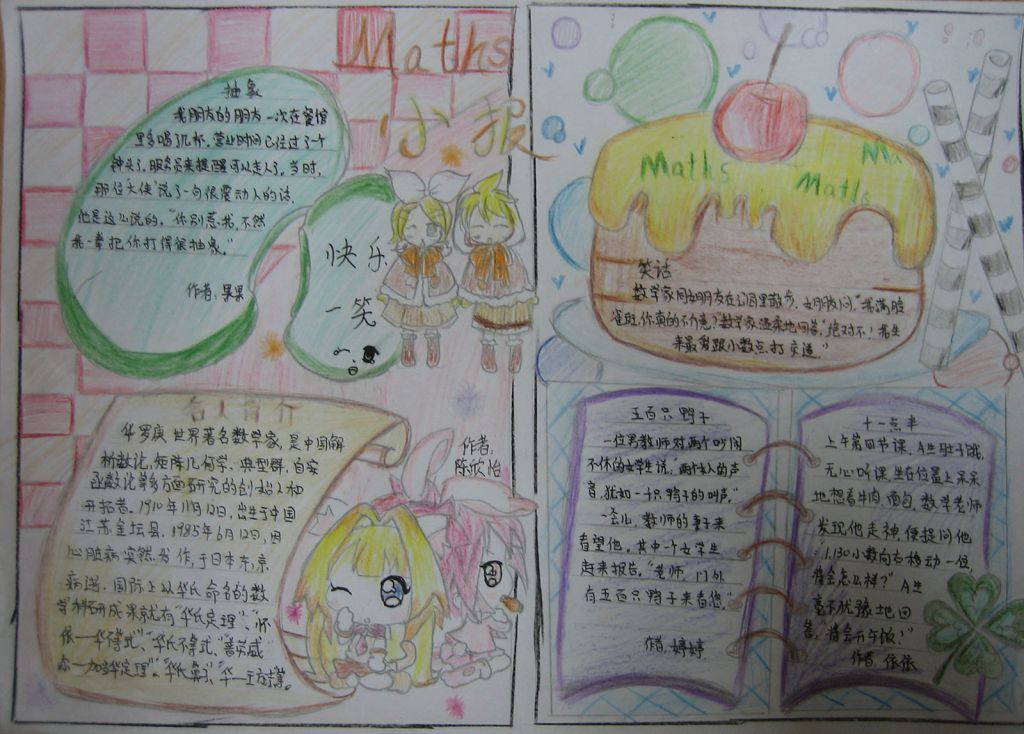 Maths
小报
抽象
我朋友的朋友一次在餐馆
里多喝了几杯,营业时间已经过了一个
钟头了,服务员来提醒可以走人了,当时,
那位大侠说了一句很震动人的话,
他是这么说的,“你别惹我,不然
我一拳把你打得很抽象。”
作者:果果
快乐
一笑
Maths
Maths
Ma
笑话
数学家同女朋友在公园里散步,女朋友问,“我满脸
雀斑,你真的不介意?”数学家温柔地回答,“绝对不!我生
来最爱跟小数点打交道。”
名人简介
华罗庚 世界著名数学家,是中国解
析数论,矩阵几何学、典型群、自安
函数论等多方面研究的创始人和
开拓者。1910年11月12日,出生于中国
江苏金坛县,1985年6月12日,因
心脏病突然发作,于日本东京
病逝。国际上以华氏命名的数
学科研成果就有“华氏定理”、“怀
依—华不等式”、“华氏不等式”、“普劳威
尔—加当华定理”、“华氏算子”、“华—王方法”。
作者:
陈欣怡
五百只鸭子
一位男教师对两个吵闹
不休的女学生说,“两个女人的声
音,犹如一千只鸭子的叫声。”
一会儿,教师的妻子来
看望他,其中一个女学生
赶来报告,“老师,门外
有五百只鸭子来看您。”
作者:婷婷
十一点半
上午第四节课,A生肚子饿,
无心听课,坐在位置上呆呆
地想着牛肉、面包,数学老师
发现他走神,便提问他
:“1.130小数向右移动一位,
将会怎么样?”A生
毫不犹豫地回
答,“将会开午饭!”
作者:依依